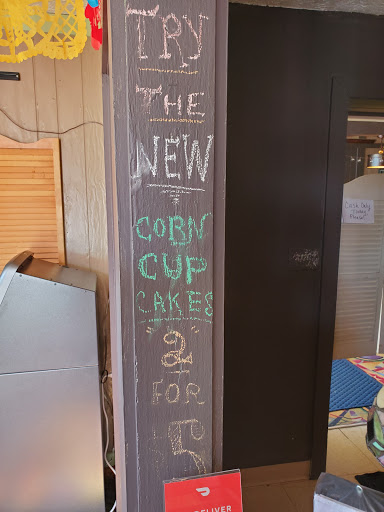 TRY
THE
NEW
CORN
CUP
CAKES
"2"
FOR
5
Cash Only
DELIVER